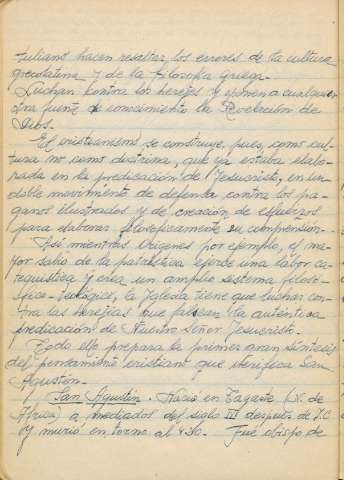 Juliano hacen resaltar los errores de la cultura
grecolatina y de la filosofía griega.-
Luchan contra los herejes y oponen a cualquier
otra fuente de conocimiento la Revelación de
Dios.-
El cristianismo se construye, pues, como cul-
tura no como doctrina, que ya estaba elabo-
rada en la predicación de Jesucristo, en un
doble movimiento de defensa contra los pa-
ganos ilustrados y de creación de esfuerzos
para elaborar filosóficamente su comprensión.-
Así mientras Orígenes por ejemplo, el ma-
yor sabio de la patrística ejerce una labor ca-
tequística y crea un amplio sistema filosó-
fico-teológico, la Iglesia tiene que luchar con-
tra las herejías que falsean la auténtica
predicación de Nuestro Señor Jesucristo.-
Todo ello prepara la primer gran síntesis
del pensamiento cristiano que verifica San
Agustín.-
San Agustín. Nació en Tagaste (N. de
África) a mediados del siglo después de J.C.
y murió en torno al Fué obispo de